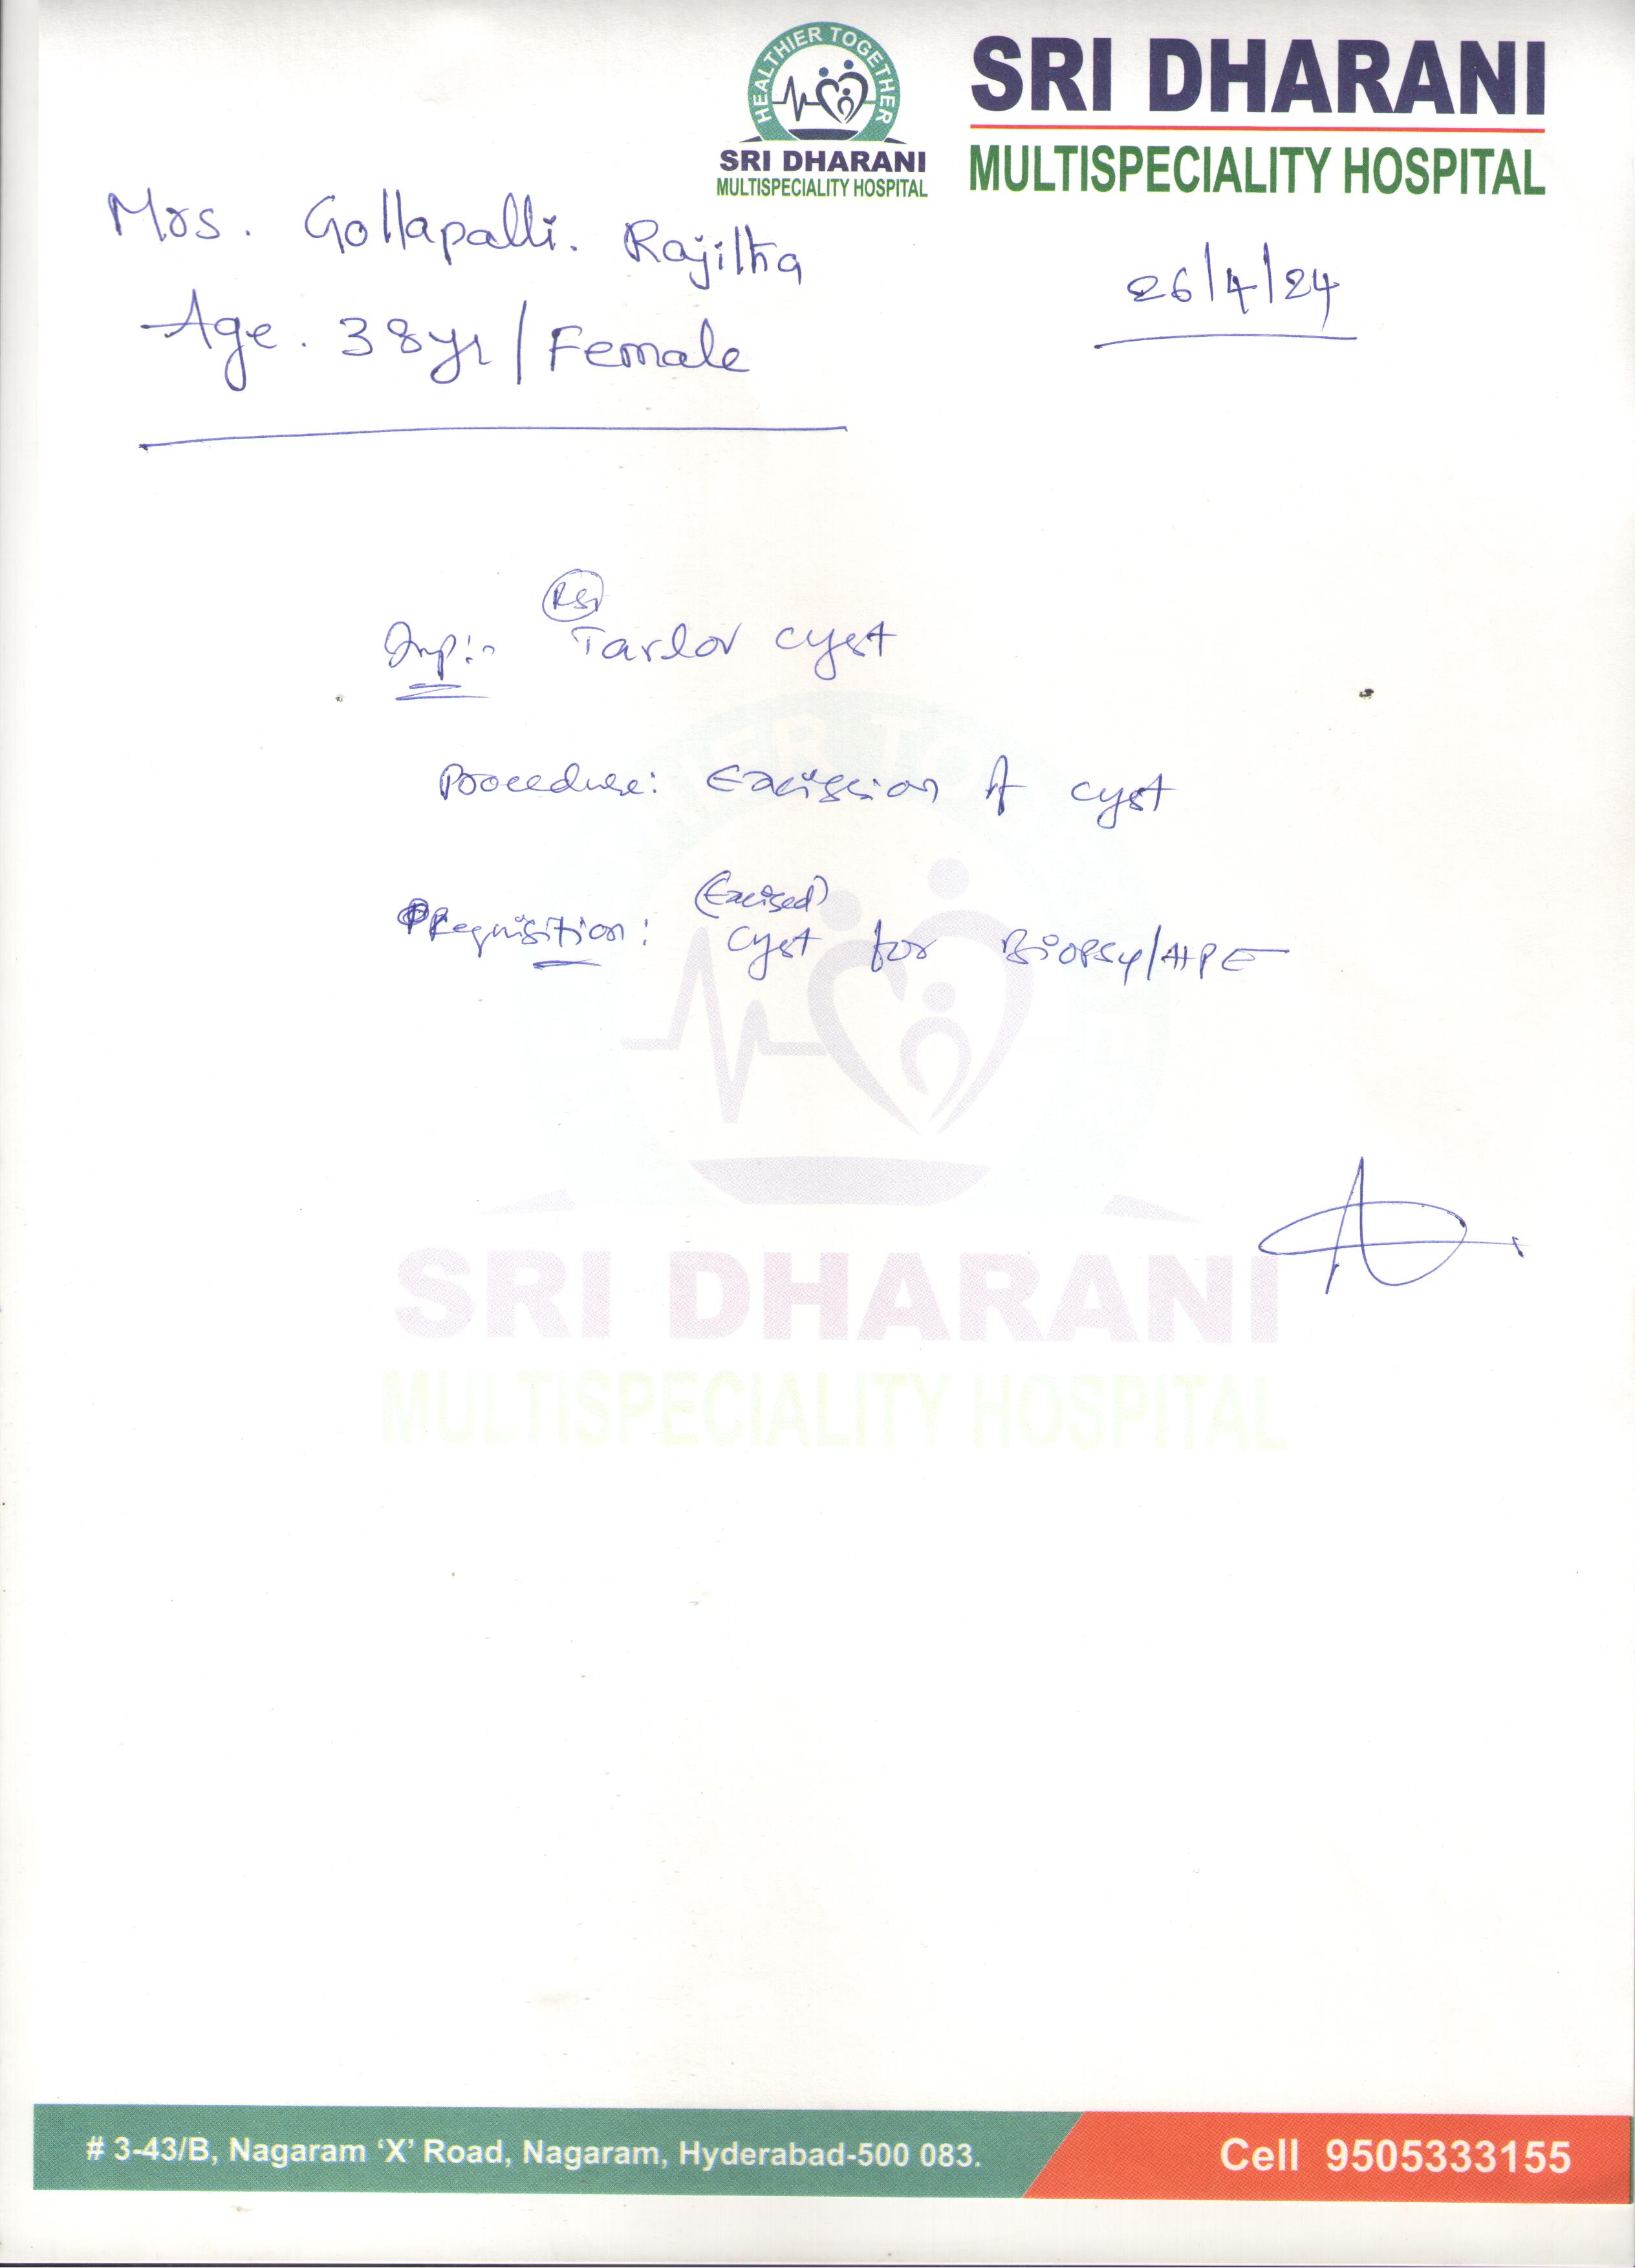 HEALTHIER TOGETHER
SRI DHARANI
MULTISPECIALITY HOSPITAL
SRI DHARANI
MULTISPECIALITY HOSPITAL
Mrs. Gollapalli. Rajitha
26/4/24
Age. 38yr/Female
Imp:-
Tarlov cyst
Procedure: Excission of cyst
(Excised)
Requisition: cyst for Biopsy/HPE
SRI DHARANI
MULTISPECIALITY HOSPITAL
# 3-43/B, Nagaram ‘X’ Road, Nagaram, Hyderabad-500 083.
Cell 9505333155